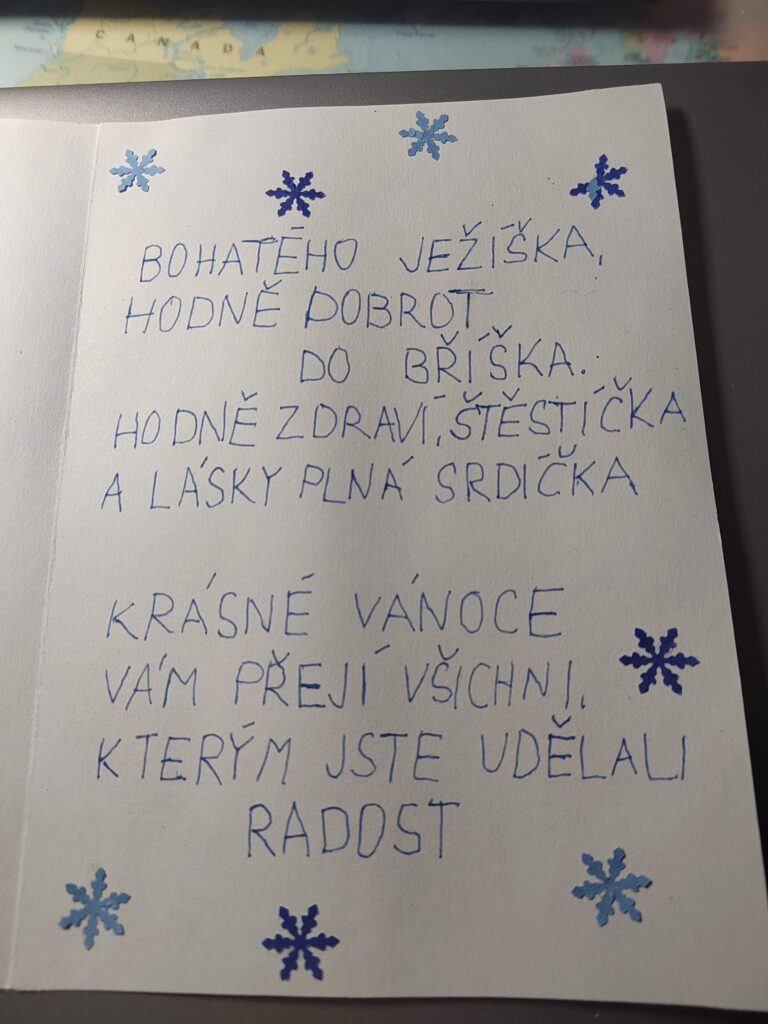 CANADA
BOHATÉHO JEŽÍŠKA,
HODNĚ DOBROT
DO BŘÍŠKA.
HODNĚ ZDRAVÍ, ŠTĚSTÍČKA
A LÁSKY PLNÁ SRDÍČKA
KRÁSNÉ VÁNOCE
VÁM PŘEJÍ VŠICHNI,
KTERÝM JSTE UDĚLALI
RADOST